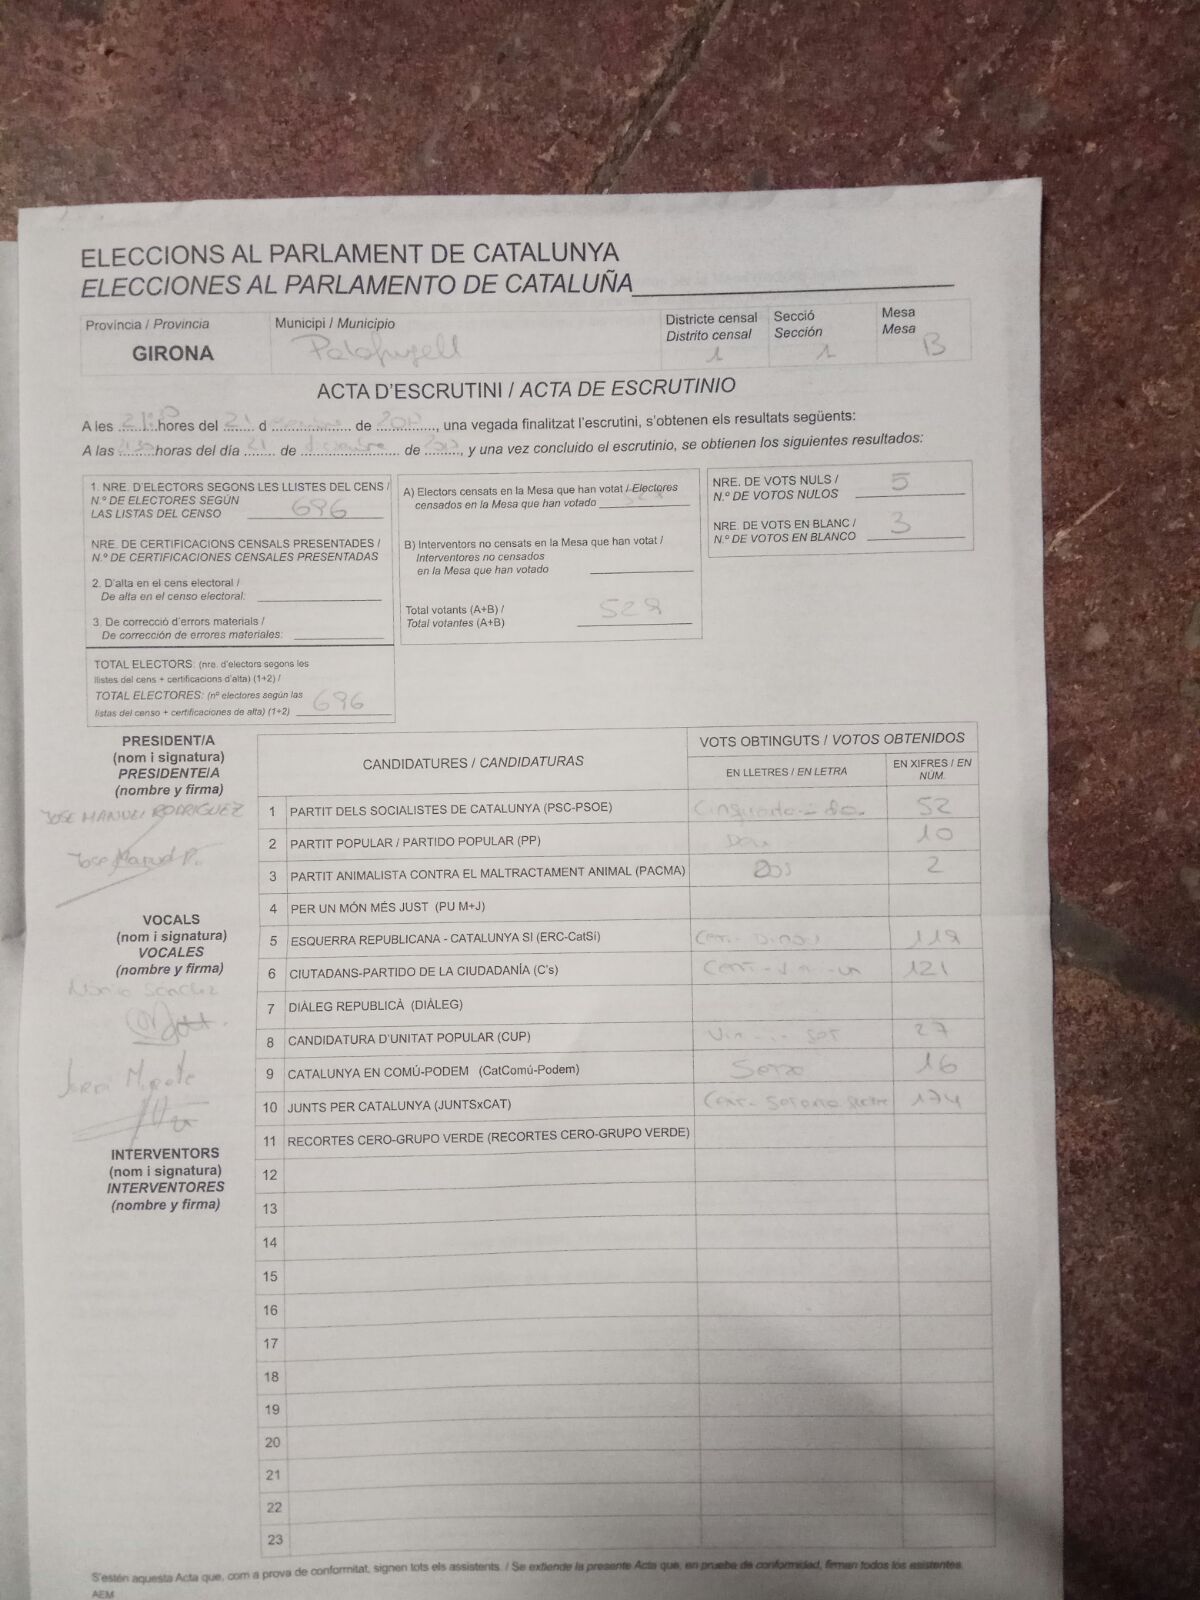 ELECCIONS AL PARLAMENT DE CATALUNYA
ELECCIONES AL PARLAMENTO DE CATALUÑA
Província / Provincia
GIRONA
Municipi / Municipio
Palafrugell
Districte censal
Distrito censal
1
Secció
Sección
1
Mesa
Mesa
B
ACTA D'ESCRUTINI / ACTA DE ESCRUTINIO
A les hores del 21 d de, una vegada finalitzat l'escrutini, s'obtenen els resultats següents:
A las horas del día 21 de de, y una vez concluido el escrutinio, se obtienen los siguientes resultados:
1. NRE. D'ELECTORS SEGONS LES LLISTES DEL CENS /
N.º DE ELECTORES SEGÚN
LAS LISTAS DEL CENSO 696
NRE. DE CERTIFICACIONS CENSALS PRESENTADES /
N.º DE CERTIFICACIONES CENSALES PRESENTADAS
2. D'alta en el cens electoral /
De alta en el censo electoral:
3. De correcció d'errors materials /
De corrección de errores materiales:
TOTAL ELECTORS: (nre. d'electors segons les
llistes del cens + certificacions d'alta) (1+2) /
TOTAL ELECTORES: (nº electores según las
listas del censo + certificaciones de alta) (1+2) 696
A) Electors censats en la Mesa que han votat / Electores
censados en la Mesa que han votado
B) Interventors no censats en la Mesa que han votat /
Interventores no censados
en la Mesa que han votado
Total votants (A+B) /
Total votantes (A+B) 529
NRE. DE VOTS NULS /
N.º DE VOTOS NULOS 5
NRE. DE VOTS EN BLANC /
N.º DE VOTOS EN BLANCO 3
PRESIDENT/A
(nom i signatura)
PRESIDENTE/A
(nombre y firma)
JOSE MANUEL RODRIGUEZ
Jose Manuel R.
VOCALS
(nom i signatura)
VOCALES
(nombre y firma)
Sánchez
INTERVENTORS
(nom i signatura)
INTERVENTORES
(nombre y firma)
CANDIDATURES / CANDIDATURAS
VOTS OBTINGUTS / VOTOS OBTENIDOS
EN LLETRES / EN LETRA
EN XIFRES / EN NÚM.
1 PARTIT DELS SOCIALISTES DE CATALUNYA (PSC-PSOE) 52
2 PARTIT POPULAR / PARTIDO POPULAR (PP) 10
3 PARTIT ANIMALISTA CONTRA EL MALTRACTAMENT ANIMAL (PACMA) Dos 2
4 PER UN MÓN MÉS JUST (PU M+J)
5 ESQUERRA REPUBLICANA - CATALUNYA SI (ERC-CatSí) 119
6 CIUTADANS-PARTIDO DE LA CIUDADANÍA (C's) 121
7 DIÀLEG REPUBLICÀ (DIÀLEG)
8 CANDIDATURA D'UNITAT POPULAR (CUP) 27
9 CATALUNYA EN COMÚ-PODEM (CatComú-Podem) 16
10 JUNTS PER CATALUNYA (JUNTSxCAT) 174
11 RECORTES CERO-GRUPO VERDE (RECORTES CERO-GRUPO VERDE)
12
13
14
15
16
17
18
19
20
21
22
23
S'estén aquesta Acta que, com a prova de conformitat, signen tots els assistents. / Se extiende la presente Acta que, en prueba de conformidad, firman todos los asistentes.
AEM